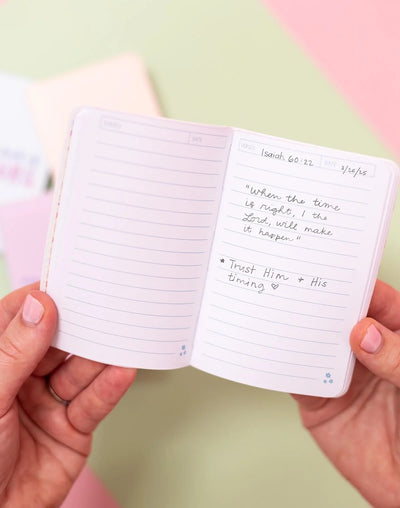 VERSE
DATE
VERSE
Isaiah 60:22
DATE
2/26/25
"When the time
is right, I the
Lord, will make
it happen"
* Trust Him + His
timing ♡